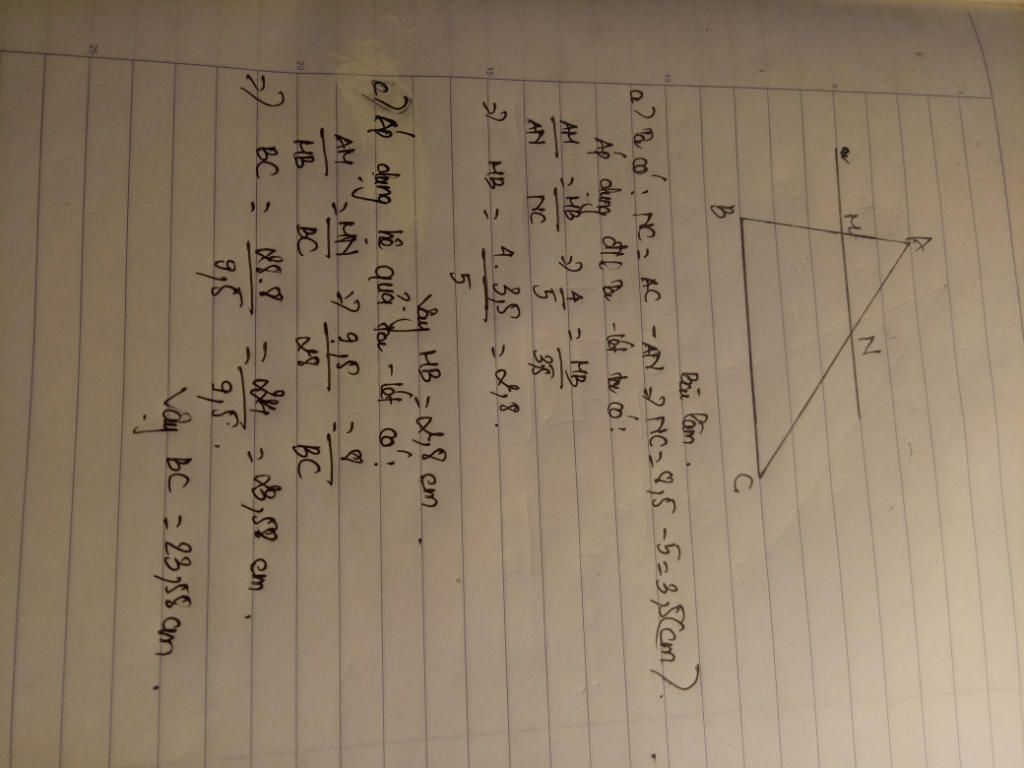 A
M
N
a
B
C
Bài làm.
a) Ta có: NC = AC - AN => NC = 8,5 - 5 = 3,5 (cm).
Áp dụng đlí Ta-lét ta có:
AM/AN = MB/NC => 4/5 = MB/3,5
=> MB = 4.3,5/5 = 2,8.
Vậy MB = 2,8 cm.
a) Áp dụng hệ quả Ta-lét có:
AM/MB = MN/BC => 9,5/28 = 8/BC
=> BC = 28.8/9,5 = 224/9,5 = 23,58 cm.
Vậy BC = 23,58 cm.